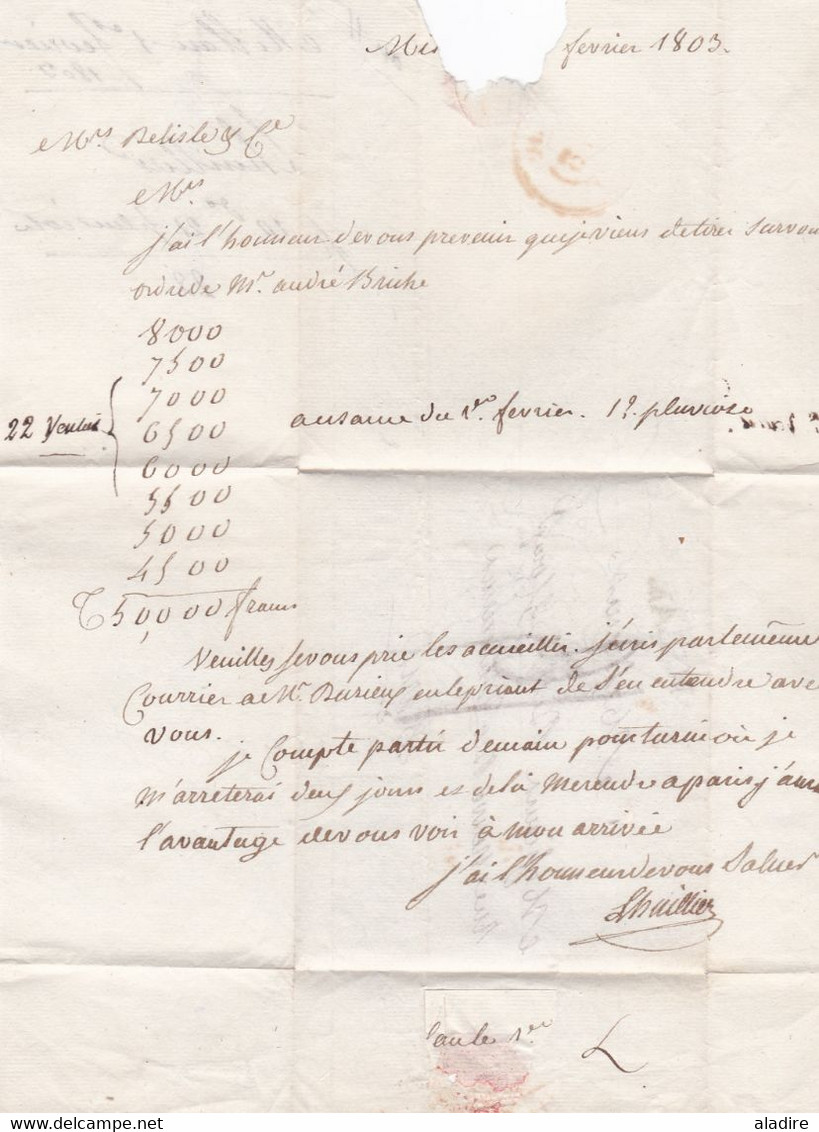 fevrier 1803.
Mrs Belisle & Ce
Mrs
j'ai l'honneur de vous prevenir que je viens de tirer sur vou
ordre de Mr. andré Briche
8000
7500
7000
22 Ventose
du 1er. fevrier. 12 pluviose
6500
6000
5500
5000
4500
50,000 francs
Veuilles je vous prie les acceuillir. j'ecris par le même
Courrier a Mr. en le priant de s'en entendre ave
vous.
je Compte partir demain pour turin où je
m'arreterai deux jours et de là me rendre a paris j'aur
l'avantage de vous voir à mon arrivée
j'ai l'honneur de vous Saluer
Lhuillier
L
aladire